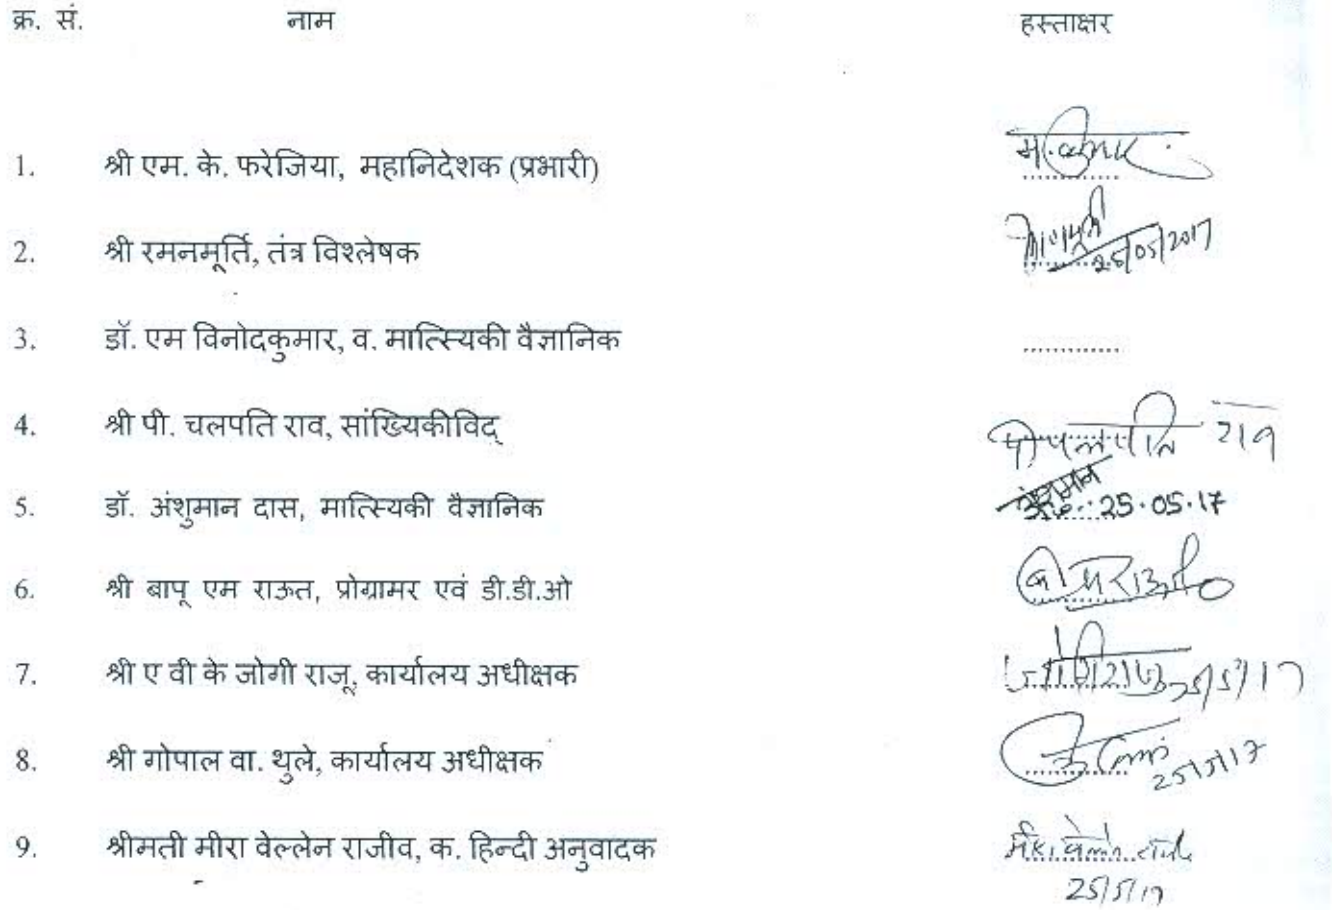 क्र. सं. नाम हस्ताक्षर
1. श्री एम. के. फरेजिया, महानिदेशक (प्रभारी)
2. श्री रमनमूर्ति, तंत्र विश्लेषक 25/05/2017
3. डॉ. एम विनोदकुमार, व. मात्स्यिकी वैज्ञानिक .............
4. श्री पी. चलपति राव, सांख्यिकीविद् पी. चलपति राव
5. डॉ. अंशुमान दास, मात्स्यिकी वैज्ञानिक अंशुमान 25.05.17
6. श्री बापू एम राऊत, प्रोग्रामर एवं डी.डी.ओ
7. श्री ए वी के जोगी राजू, कार्यालय अधीक्षक जोगिराजु 25/5/17
8. श्री गोपाल वा. थुले, कार्यालय अधीक्षक 25/5/17
9. श्रीमती मीरा वेल्लेन राजीव, क. हिन्दी अनुवादक
25/5/17